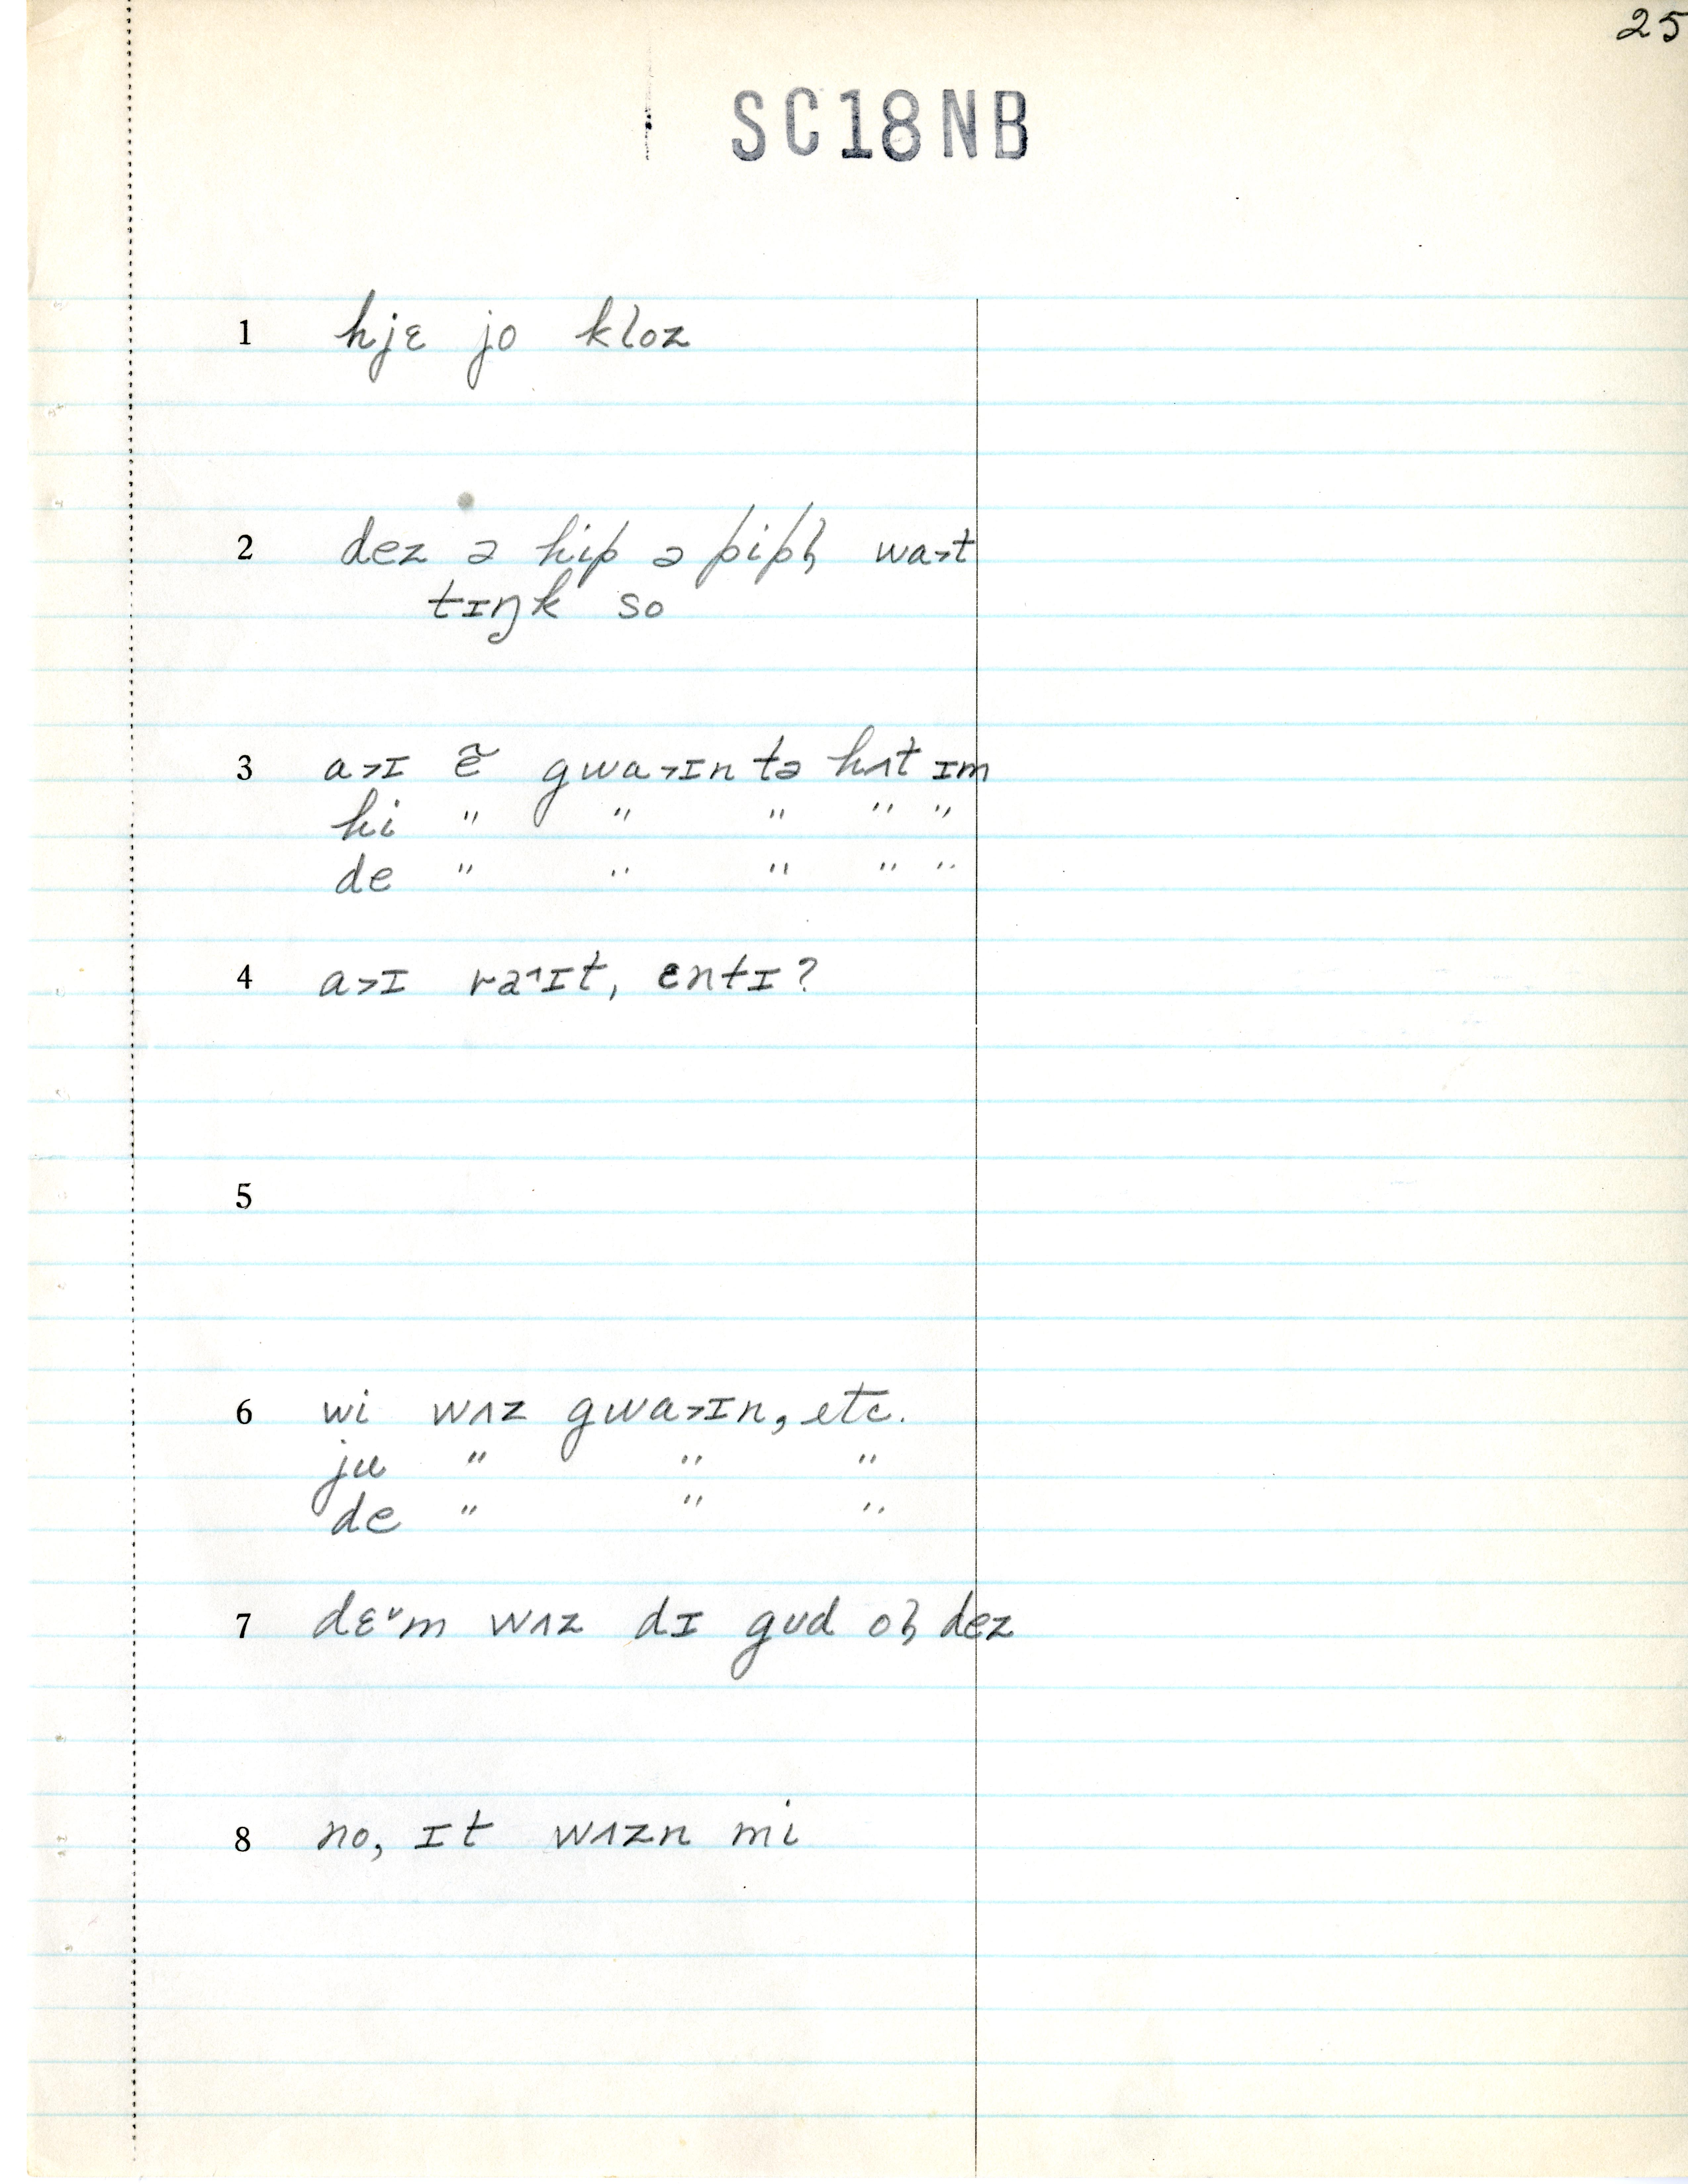 25
SC18NB
1 hjɛ jo kloz
2 dez ə hip ə pipl̩ wa˃t
tɪŋk so
3 a˃ɪ ẽ gwa˃ɪn tə hʌt ɪm
hi " " " " "
de " " " " "
4 a˃ɪ ra˄ɪt, ɛntɪ?
5
6 wi wʌz gwa˃ɪn, etc.
ju " " "
de " " "
7 dɛ˅m wʌz dɪ gud ol dez
8 no, ɪt wʌzn mi